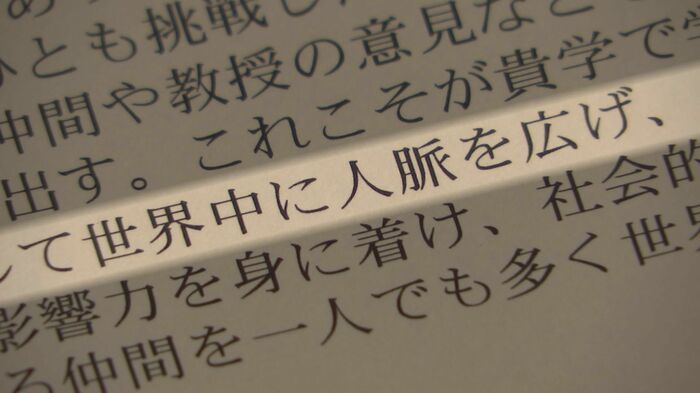 ひとも挑戦し
仲間や教授の意見など
出す。これこそが貴学で
して世界中に人脈を広げ、
影響力を身に着け、社会的
る仲間を一人でも多く世界